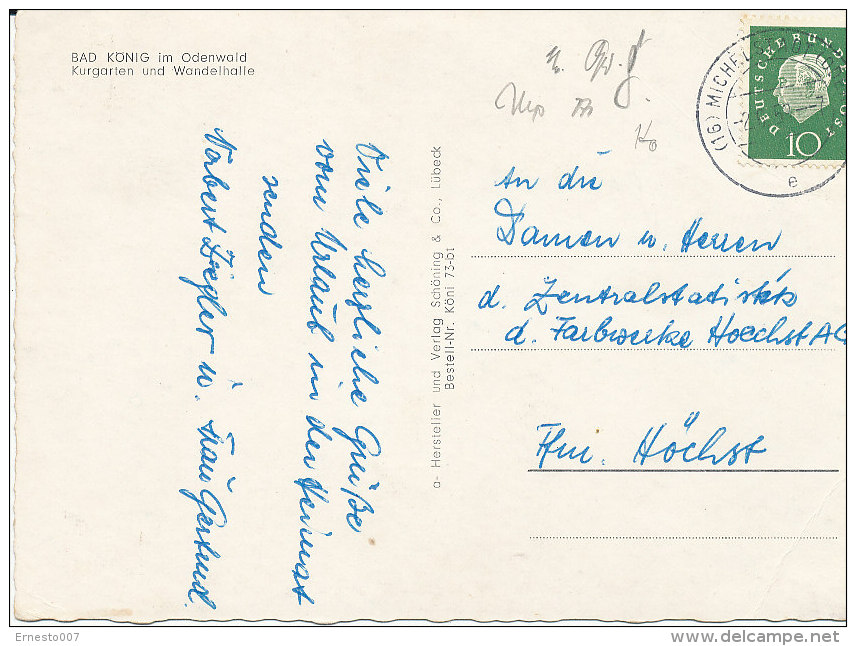 BAD KÖNIG im Odenwald
Kurgarten und Wandelhalle
Viele herzliche Grüße
vom Urlaub in der Heimat
senden
Norbert Ziegler u. Frau Gertrud.
a- Hersteller und Verlag Schöning & Co., Lübeck
Bestell-Nr. Köni 73-bt
DEUTSCHE BUNDESPOST
10
(16) MICHELSTADT
e
An die
Damen u. Herren
d. Zentralstatistik
d. Farbwerke Hoechst AG
Ffm. Höchst
Ernesto007
www.delcampe.net